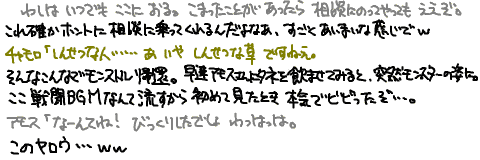 わしは いつでも ここに おる。こまったことが あったら 相談にのってやっても ええぞ。
これ確かホントに相談に乗ってくれるんだよなぁ、すごくあいまいな感じでw
チャモロ「しんせつな人‥‥‥ あ いや しんせつな草 ですねえ。
そんなこんなでモンストルに帰還。早速アモスにタネを飲ませてみると、突然モンスターの姿に。
ここ戦闘BGMなんて流すから初めて見たとき本気でビビったぞ…。
アモス「なーんてね! びっくりしたでしょ わっはっは。
このヤロウ…ww